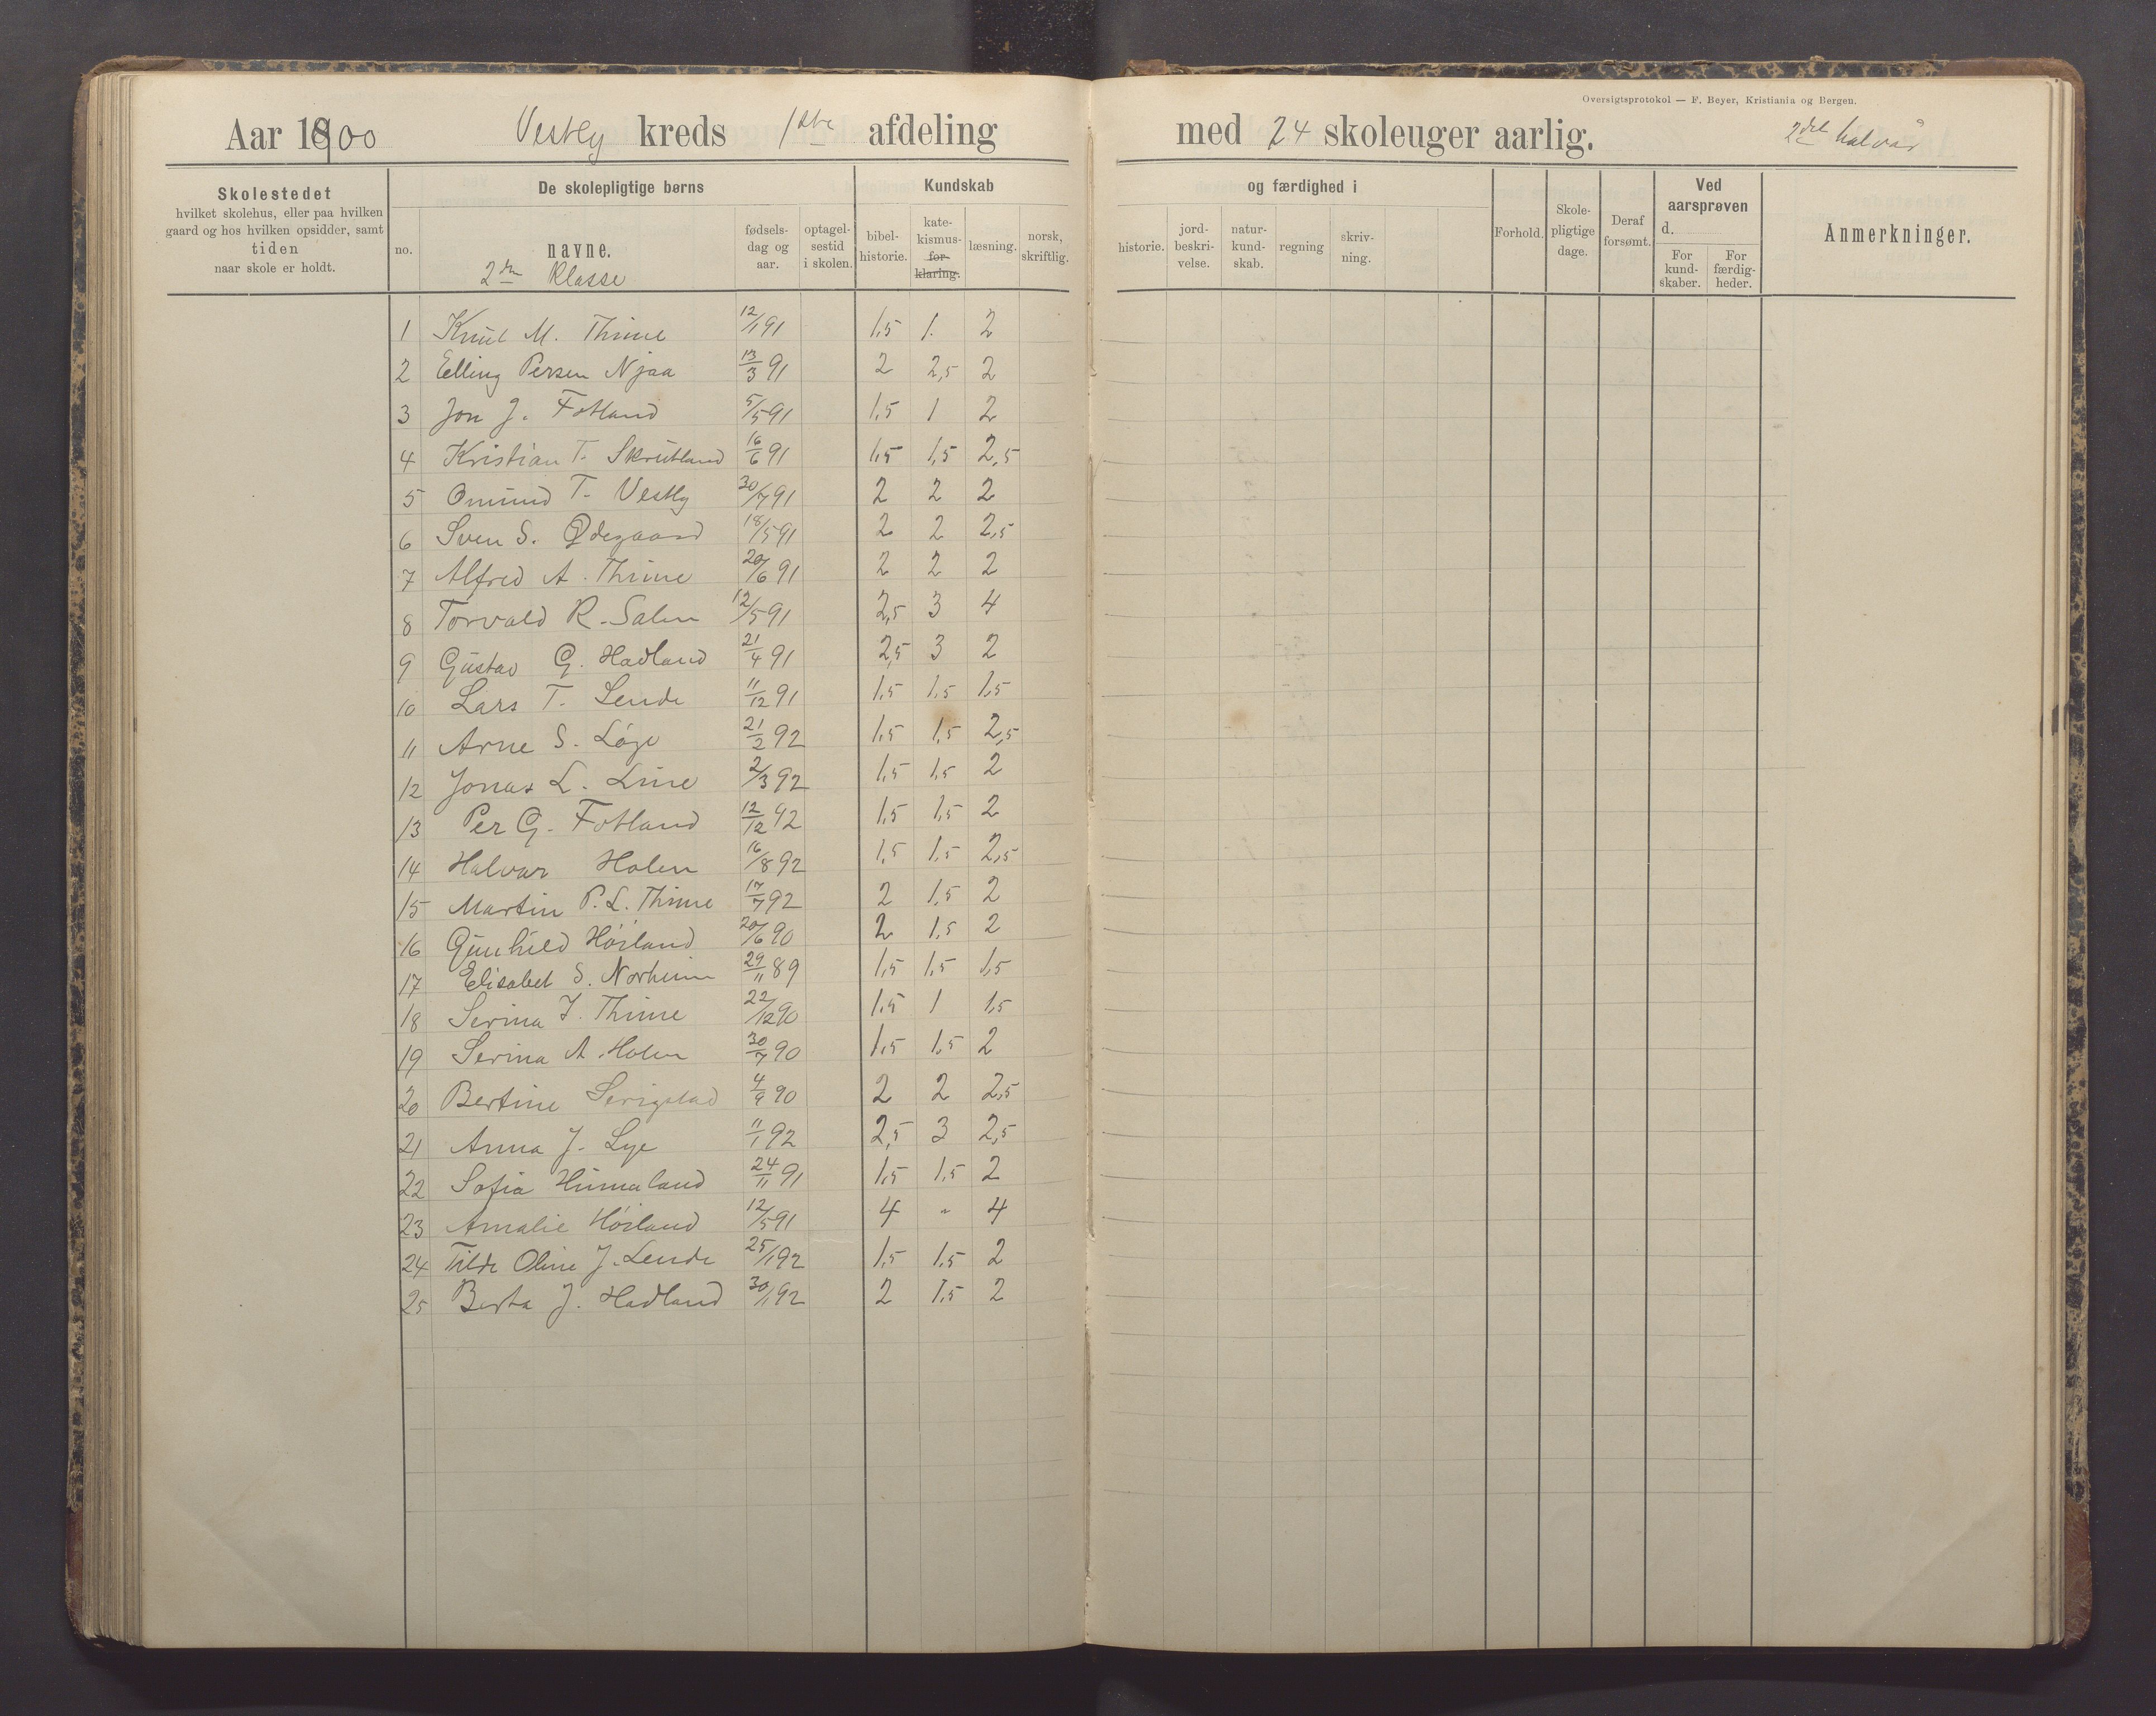 Oversigtsprotokol — F. Beyer, Kristiania og Bergen.
Aar 1900 Vestly kreds 1ste afdeling med 24 skoleuger aarlig. 2det halvår
Skolestedet
hvilket skolehus, eller paa hvilken
gaard og hos hvilken opsidder, samt
tiden
naar skole er holdt.
De skolepligtige børns
no.
navne.
2den Klasse
fødsels-
dag og
aar.
optagel-
sestid
i skolen.
Kundskab
bibel-
historie.
kate-
kismus-
for-
klaring.
læsning.
norsk,
skriftlig.
og færdighed i
historie.
jord-
beskri-
velse.
natur-
kund-
skab.
regning
skriv-
ning.
Forhold.
Skole-
pligtige
dage.
Deraf
forsømt.
Ved
aarsprøven
d.
For
kund-
skaber.
For
færdig-
heder.
Anmerkninger.
1 Knut M. Thime 12/1 91 1,5 1. 2
2 Elling Persen Njaa 13/3 91 2 2,5 2
3 Jon J. Fotland 5/5 91 1,5 1 2
4 Kristian T. Skrutland 16/6 91 1,5 1,5 2,5
5 Omund T. Vestly 30/7 91 2 2 2
6 Sven S. Ødegaard 18/5 91 2 2 2,5
7 Alfred A. Thime 20/6 91 2 2 2
8 Torvald R. Salen 12/5 91 2,5 3 4
9 Gustav G. Hadland 21/4 91 2,5 3 2
10 Lars T. Lende 11/12 91 1,5 1,5 1,5
11 Arne S. Løge 21/2 92 1,5 1,5 2,5
12 Jonas L. Line 2/3 92 1,5 1,5 2
13 Per G. Fotland 12/12 92 1,5 1,5 2
14 Halvar Holen 16/8 92 1,5 1,5 2,5
15 Martin P. L. Thime 17/7 92 2 1,5 2
16 Gunhild Höiland 20/6 90 2 1,5 2
17 Elisabet S. Norheim 29/11 89 1,5 1,5 1,5
18 Serina J. Thime 22/12 90 1,5 1 1,5
19 Serina A. Holen 30/7 90 1,5 1,5 2
20 Bertine Serigstad 4/9 90 2 2 2,5
21 Anna J. Lye 11/1 92 2,5 3 2,5
22 Sofia Humaland 24/11 91 1,5 1,5 2
23 Amalie Höiland 12/5 91 4 " 4
24 Tilde Oline J. Lende 25/1 92 1,5 1,5 2
25 Berta J. Hadland 30/11 92 2 1,5 2